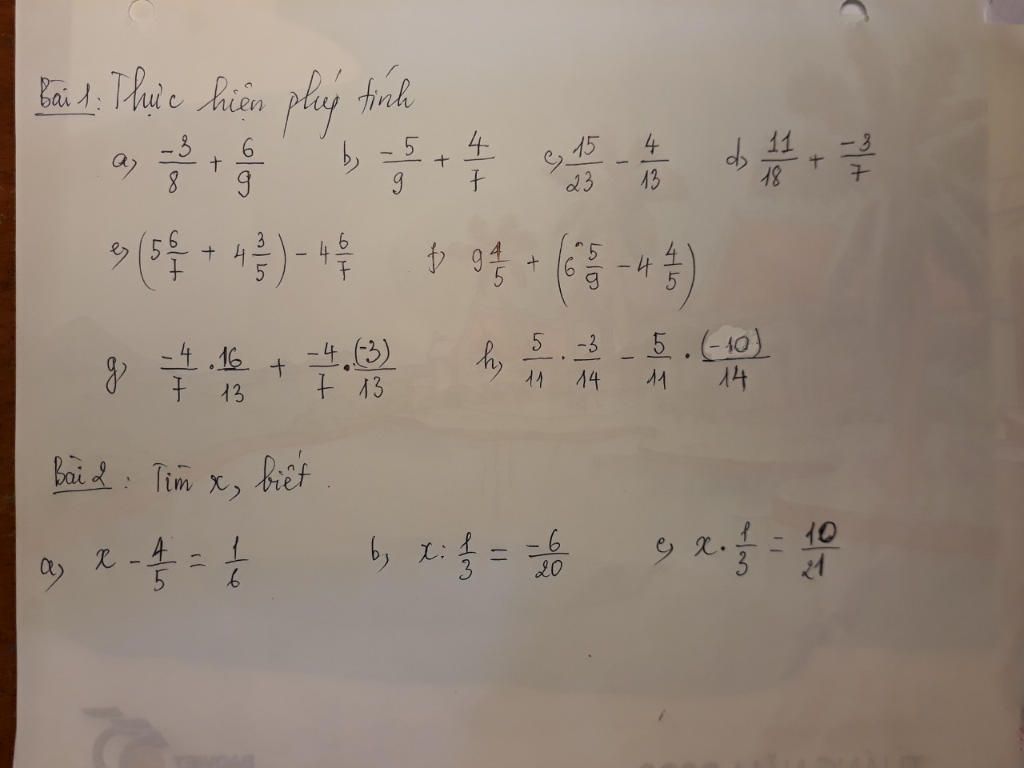 Bài 1: Thực hiện phép tính
a, -3/8 + 6/9 b, -5/9 + 4/7 c, 15/23 - 4/13 d, 11/18 + -3/7
e, (5 6/7 + 4 3/5) - 4 6/7 f, 9 4/5 + (6 5/9 - 4 4/5)
g, -4/7 . 16/13 + -4/7 . (-3)/13 h, 5/11 . -3/14 - 5/11 . (-10)/14
Bài 2: Tìm x, biết.
a, x - 4/5 = 1/6 b, x : 1/3 = -6/20 c, x . 1/3 = 10/21